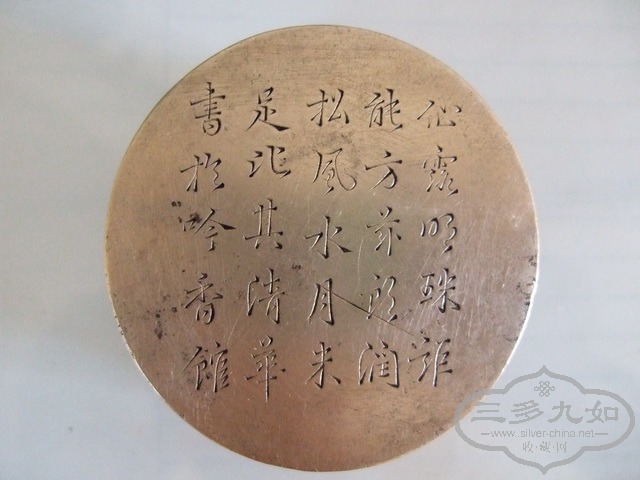 仙露明珠詎
能方茲朗潤
松風水月未
足比其清華
書於吟香館
三多九如
www.silver-china.net
收·藏·网